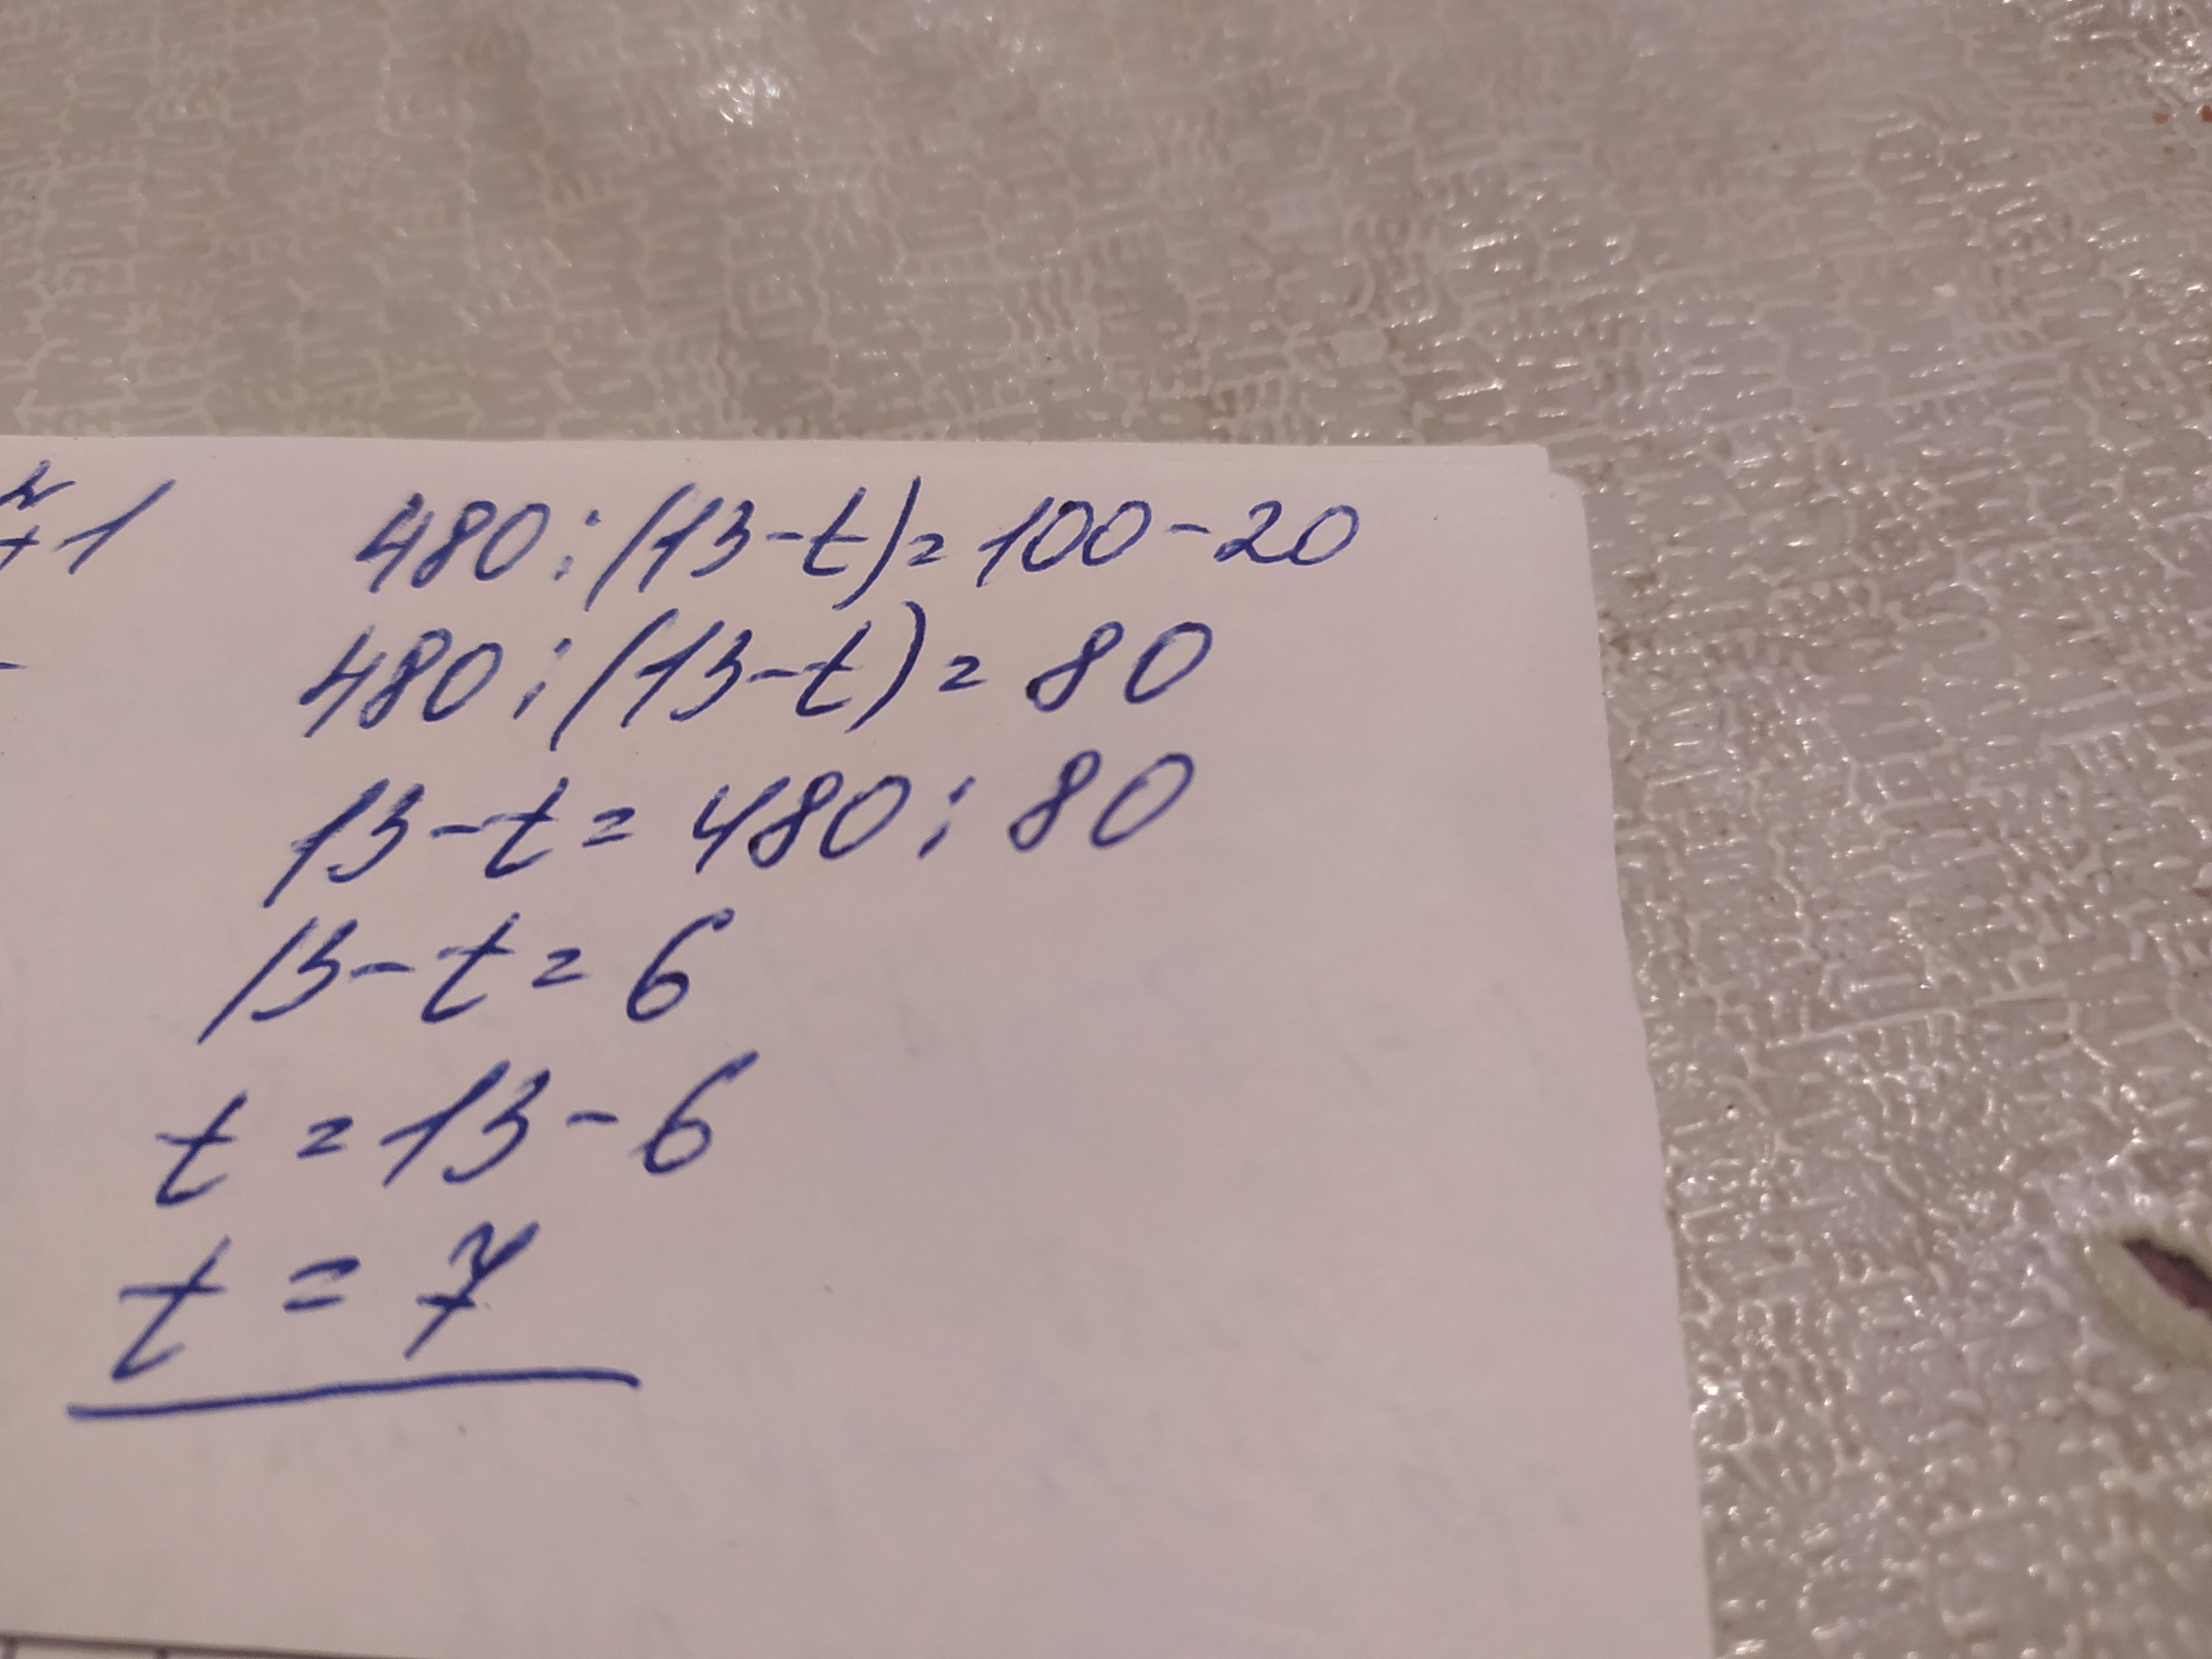 +1
480:(13-t)=100-20
480:(13-t)=80
13-t=480:80
13-t=6
t=13-6
t=7